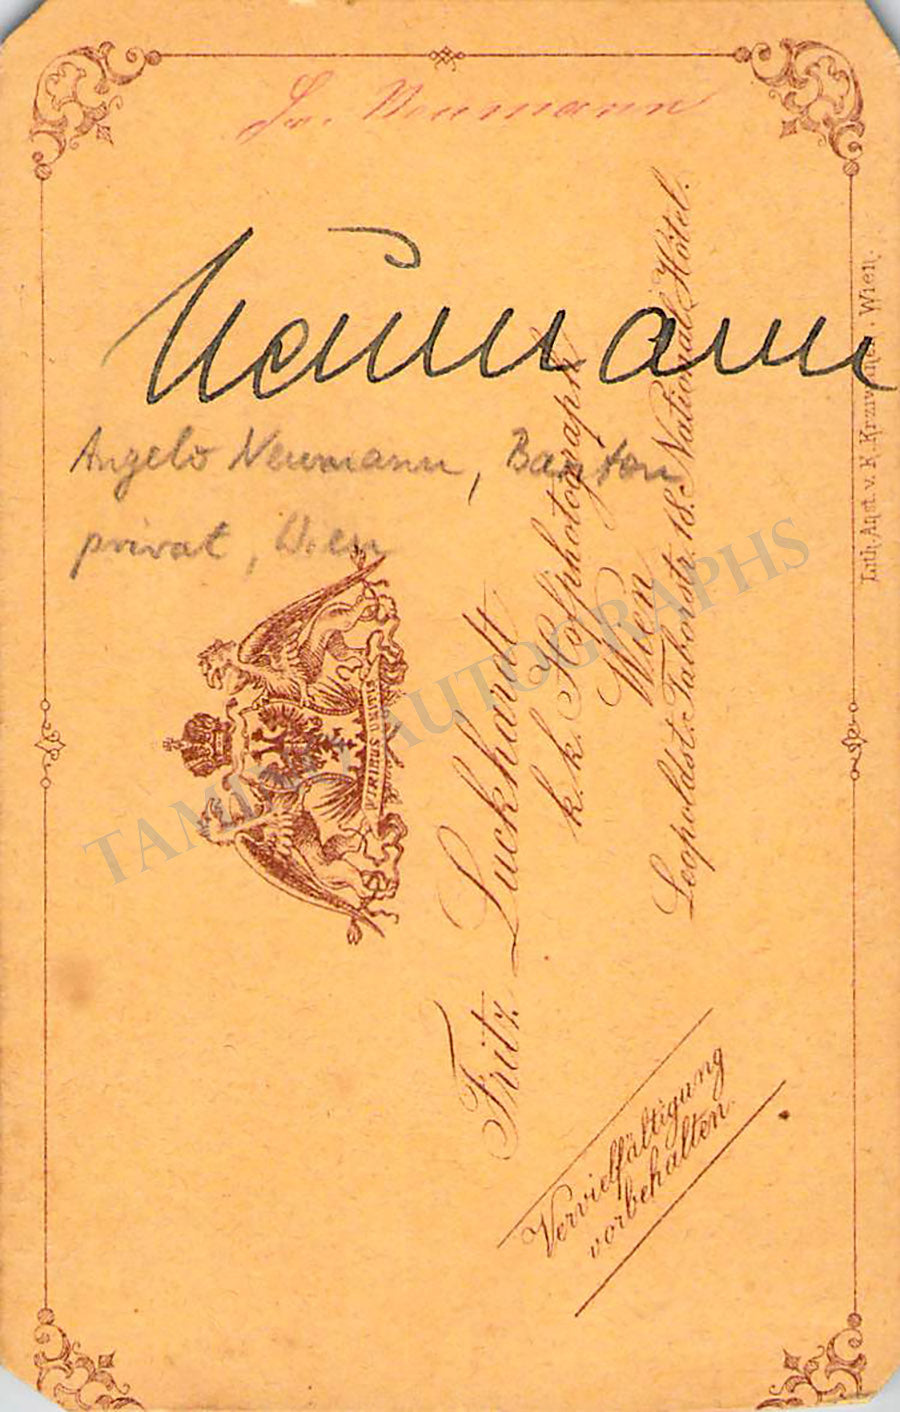 Hr. Neumann
Neumann
Angelo Neumann, Bariton
privat, Wien
VIRIBUS UNITIS
Fritz Luckhardt
k. k. Hofphotograph
Wien
Leopoldst. Taborstr. 18. National Hôtel.
Vervielfältigung
vorbehalten.
Lith. Anst. v. K. Krziwanek. Wien.
TAMINO AUTOGRAPHS